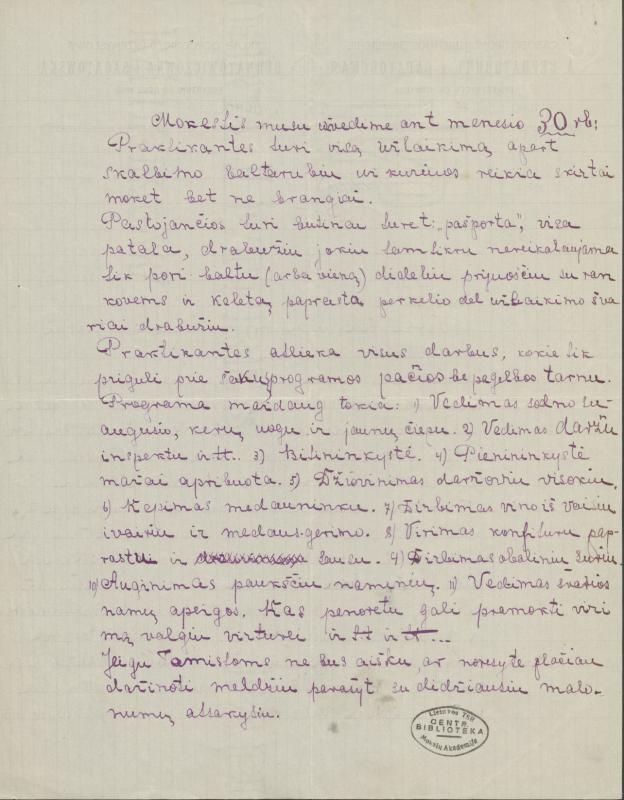 Mokestis musu užvedime ant menesio 30 rb;
Praktikantes turi visą užlaikimą apart
skalbimo baltarubiu už kurčuos reikia skirtai
moket bet ne brangiai.
Pastojančios turi butinai turet: "pašporta", visa
patala, drabužiu jokiu tam tikru nereikalaujama
tik pori baltu (arba vieną) dideliu prijuosčiu su ran
kovems ir keletą paprasta perkelio del užlaikimo šva
riai drabužiu.
Praktikantes atlieka visus darbus, kokie tik
priguli prie programos pačios be pagelbos tarnu.
Programa maždaug tokia: 1) Vedimas sodno su-
augusio, kerų uogu ir jaunų čiepu. 2) Vedimas daržu
inspektu ir tt.. 3) Bitininkystė. 4) Pienininkystė
mažai apribuota. 5) Džiovinimas daržoviu visokiu.
6) Kepimas meduninku. 7) Dirbimas vino iš vaisiu
ivairiu ir medaus-gerimo. 8) Virimas konfituru pap-
rastu ir sausu. 9) Dirbimas obaliniu suriu.
10) Auginimas paukščiu naminių. 11) Vedimas švarios
namų apeigos. Kas penoretu gali pramokti viri
mą valgiu virtuvei ir tt ir tt...
Jeigu Tamistoms ne bus aišku, ar noresyte plačiau
dažinoti meldžiu parašyt su didžiausiu malo-
numu atsakysiu.
Lietuvos TSR
CENTR.
BIBLIOTEKA
Mokslų Akademija